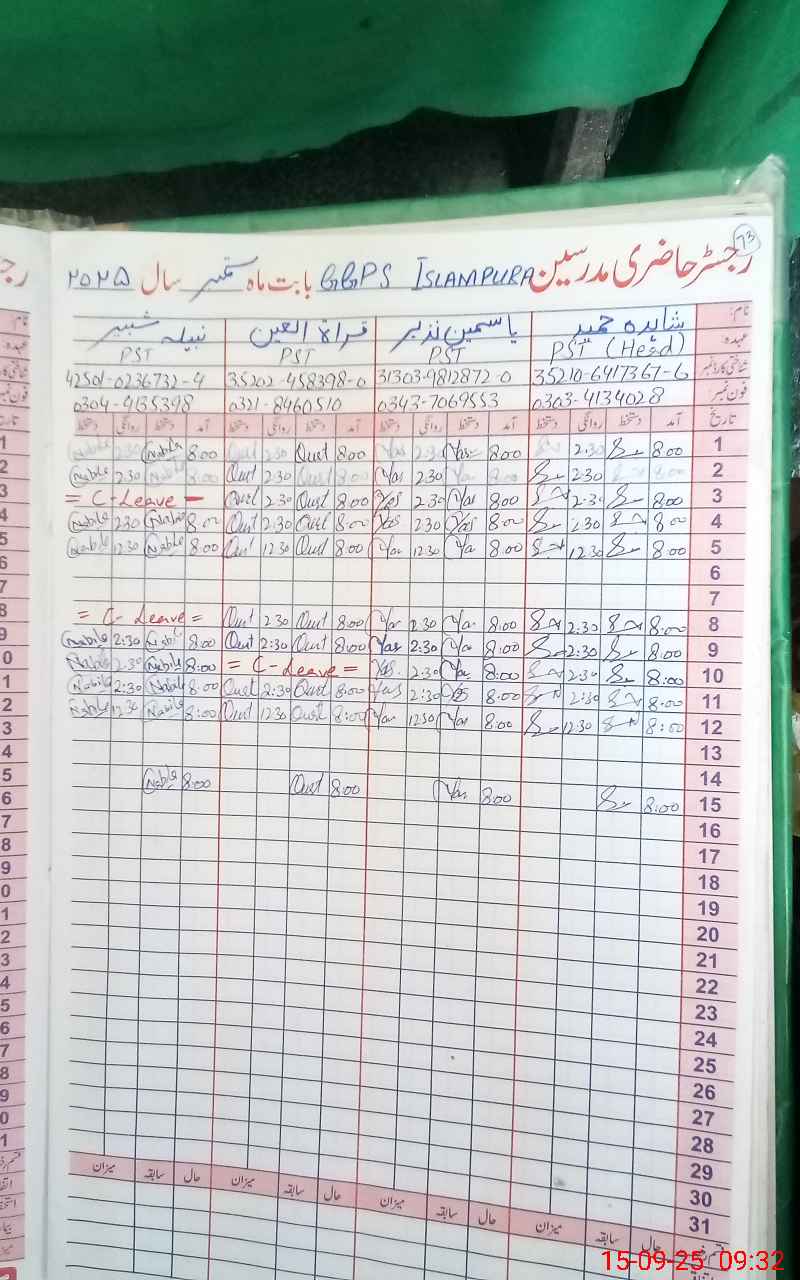 73
رجسٹر حاضری مدرسین GGPS ISLAMPURA بابت ماہ ستمبر سال ۲۰۲۵
نام: شاہدہ حمید یاسمین نذیر قراۃ العین نبیلہ شبیر
عہدہ: PST (Head) PST PST PST
شناختی کارڈ نمبر 35210-6417367-6 31303-9812872-0 35202-458398-0 42501-0236732-4
فون نمبر 0303-4134028 0343-7069553 0321-8460510 0304-4135398
تاریخ آمد دستخط روانگی دستخط آمد دستخط روانگی دستخط آمد دستخط روانگی دستخط آمد دستخط روانگی دستخط
1 8:00 2:30 8:00 Yas 2:30 Yas 8:00 Qurt 2:30 Qurt 8:00 Nabila 2:30 Nabila
2 8:00 2:30 8:00 2:30 Yas 8:00 Qurt 2:30 Qurt 8:00 Nabila 2:30 Nabila
3 8:00 2:30 8:00 Yas 2:30 Yas 8:00 Qurt 2:30 Qurt = C-Leave =
4 8:00 2:30 8:00 Yas 2:30 Yas 8:00 Qurt 2:30 Qurt 8:00 Nabila 2:30 Nabila
5 8:00 12:30 8:00 Yas 12:30 Yas 8:00 Qurt 12:30 Qurt 8:00 Nabila 12:30 Nabila
6
7
8 8:00 2:30 8:00 Yas 2:30 Yas 8:00 Qurt 2:30 Qurt = C-Leave =
9 8:00 2:30 8:00 Yas 2:30 Yas 8:00 Qurt 2:30 Qurt 8:00 Nabila 2:30 Nabila
10 8:00 2:30 8:00 Yas 2:30 Yas = C-Leave = 8:00 Nabila 2:30 Nabila
11 8:00 2:30 8:00 Yas 2:30 Yas 8:00 Qurt 2:30 Qurt 8:00 Nabila 2:30 Nabila
12 8:00 12:30 8:00 Yas 12:30 Yas 8:00 Qurt 12:30 Qurt 8:00 Nabila 12:30 Nabila
13
14
15 8:00 8:00 Yas 8:00 Qurt 8:00 Nabila
16
17
18
19
20
21
22
23
24
25
26
27
28
29
30
31
حال سابقہ میزان حال سابقہ میزان حال سابقہ میزان حال سابقہ میزان
15-09-25 09:32